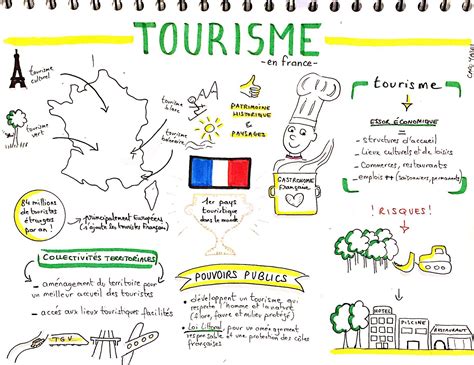 TOURISME
-en france-
tourisme culturel
tourisme vert
tourisme blanc
tourisme balnéaire
PATRIMOINE
HISTORIQUE
&
PAYSAGES
GASTRONOMIE
française
tourisme
ESSOR ÉCONOMIQUE =
- structures d'accueil
- Lieux culturels et de loisirs
- Commerces, restaurants
- emplois ++ (saisonniers, permanents)
! RISQUES!
84 millions
de touristes
étrangers
par an !
principalement Européens
(s'ajoute les touristes français)
1er pays
touristique
dans le monde
COLLECTIVITÉS TERRITORIALES
- aménagement du territoire pour
un meilleur accueil des touristes
- accès aux lieux touristiques facilités
TGV
POUVOIRS PUBLICS
développent un tourisme, qui
respecte l'homme et la nature
(flore, faune et milieu protégé)
Loi Littoral, pour un aménagement
responsable et une protection des côtes
françaises
HOTEL
PISCINE
RESTAURANT